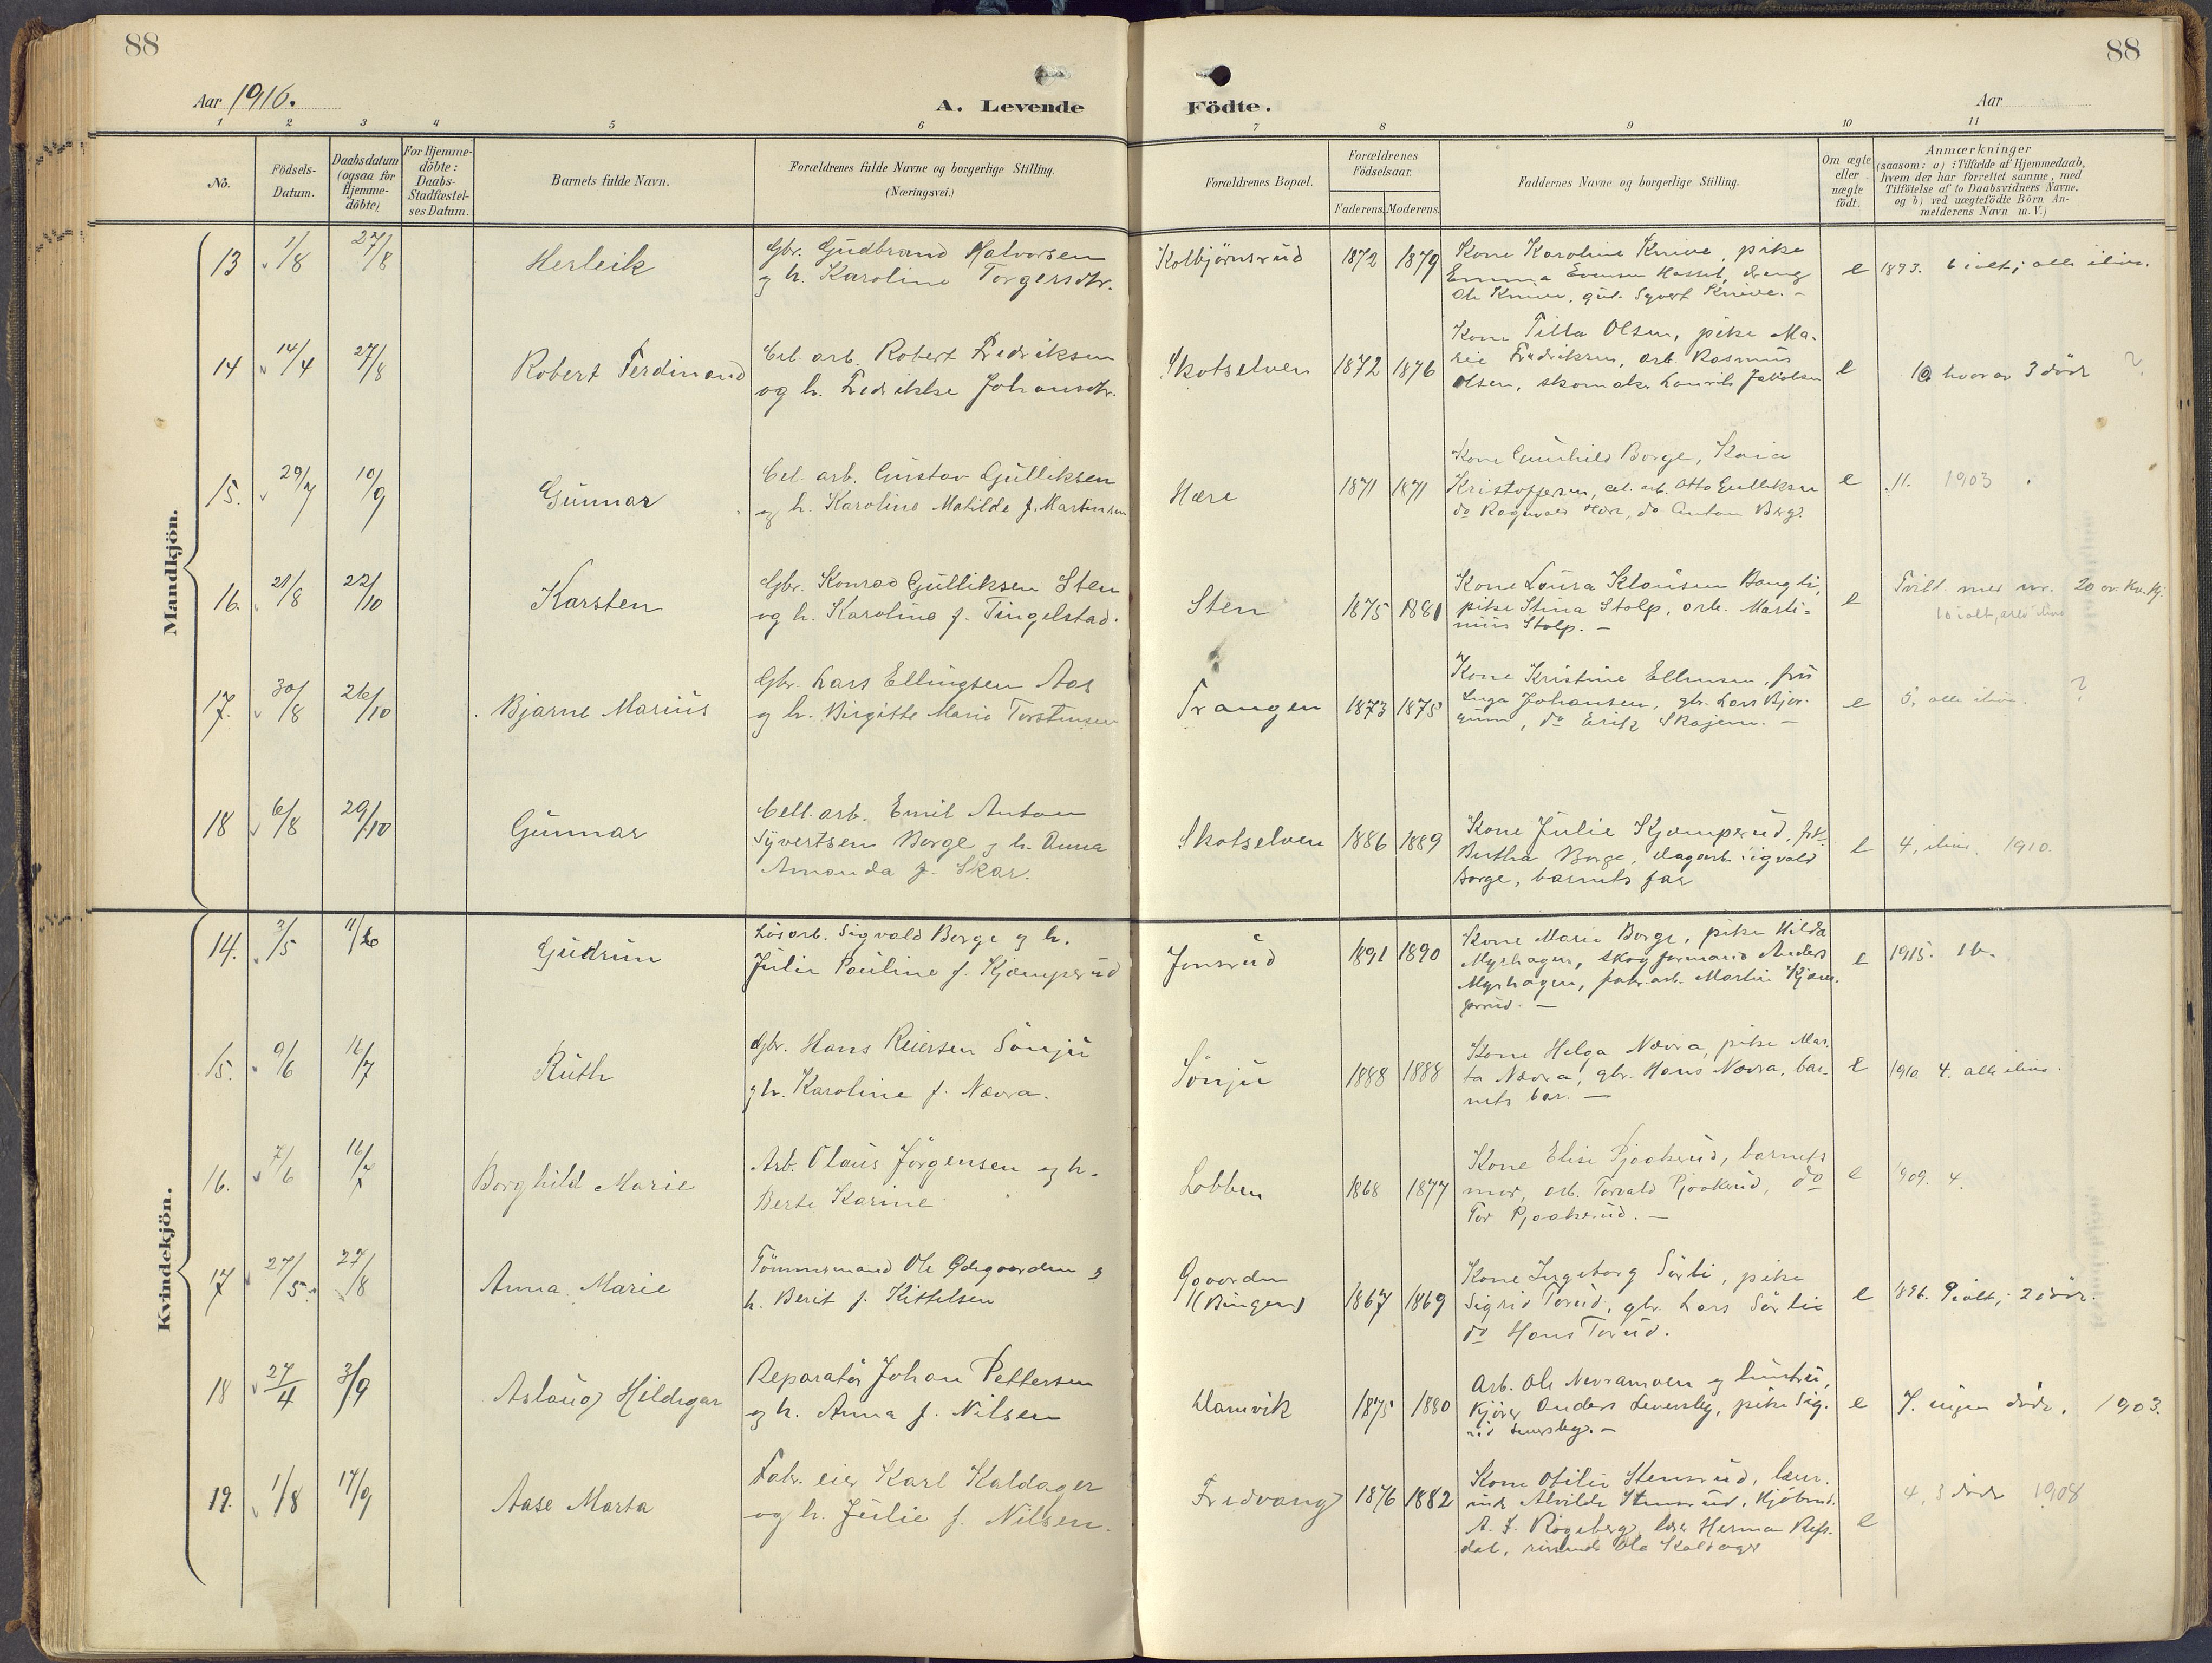 88
88
Aar 1916.
A. Levende
Födte.
Aar
1 2 3 4 5 6 7 8 9 10 11
No.
Födsels-
Datum.
Daabsdatum
(ogsaa for
Hjemme-
döbte)
For Hjemme-
döbte:
Daabs-
Stadfæstel-
ses Datum.
Barnets fulde Navn.
Forældrenes fulde Navne og borgerlige Stilling.
(Næringsvei.)
Forældrenes Bopæl.
Forældrenes
Födselsaar.
Faderens. Moderens.
Faddernes Navne og borgerlige Stilling.
Om ægte
eller
uægte
født.
Anmærkninger
(saasom: a) i Tilfælde af Hjemmedaab,
hvem der har forrettet samme, med
Tilføielse af to Daabsvidners Navne.
og b) ved uægtefødte Börn An-
melderens Navn m.V.)
Mandkjön.
13 1/8 27/8 Herleik
Gbr. Gudbrand Halvorsen
og h. Karoline Torgersdtr.
Kolbjörnsrud 1872 1879
Kone Karoline Knive, pike
Emma Evensen Hasset, dreng
Ole Knive, gut. Syvert Knive. -
e 1893. 6 ialt; alle ilive.
14 14/4 27/8 Robert Ferdinand
Cel. arb. Robert Fredriksen
og h. Fredrikke Johansdtr.
Skotselven 1872 1876
Kone Tilla Olsen, pike Ma-
rie Fredriksen, arb. Rasmus
Olsen, skomaker Laurits Jakobsen
e 10 hvorav 3 döde ?
15. 29/7 10/9 Gunnar
Cel. arb. Gustav Gulliksen
og h. Karoline Matilde f. Martinsen
Hære 1871 1871
Kone Gunhild Borge, Kaia
Kristoffersen, cel. arb. Otto Gulliksen
do Ragnvald Hære, do Anton Berg.
e 11. 1903
16. 21/8 22/10 Karsten
Gbr. Konrad Gulliksen Sten
og h. Karoline f. Tingelstad.
Sten 1875 1881
Kone Laura Klausen Bangli,
pike Stina Stolp, arb. Marti-
nius Stolp. -
e Tvill. med nr. 20 av Kv.kj.
10 ialt, alle ilive
17. 30/8 26/10 Bjarne Marius
Gbr. Lars Ellingsen Aas
og h. Birgitte Marie Torstensen
Trangen 1873 1875
Kone Kristine Ellensen, fru
Inga Johansen, gbr. Lars Bjer-
, do Erik Skajem. -
e 5, alle ilive. ?
18 6/8 29/10 Gunnar
Cell. arb. Emil Anton
Syvertsen Borge og h. Anna
Amanda f. Skar.
Skotselven 1886 1889
Kone Julie Kjæmperud, frk.
Bertha Borge, dagarb. Sigvald
Borge, barnets far
e 4, ilive. 1910.
Kvindekjön.
14. 3/5 11/6 Gudrun
Lösarb. Sigvald Berge og h.
Julie Pauline f. Kjæmperud
Jonsrud 1891 1890
Kone Marie Borge, pike Hilda
Myrhagen, skogformand Anders
Myrhagen, fabr. arb. Martin Kjæm-
perud. -
e 1915. 1b.
15. 9/6 16/7 Ruth
Gbr. Hans Reiersen Sönju
og h. Karoline f. Nævra.
Sönju 1888 1888
Kone Helga Nævra, pike Mar-
ta Nævra, gbr. Hans Nævra, bar-
nets far. -
e 1910 4. alle ilive.
16. 7/6 16/7 Borghild Marie
Arb. Olaus Jörgensen og h.
Berte Karine
Lobben 1868 1877
Kone Elise Pjaakerud, barnets
mor, arb. Torvald Pjaakerud, do
Tor Pjaakerud. -
e 1909. 4.
17 27/5 27/8 Anna Marie
Tömmermand Ole Ödegaarden og
h. Berit f. Kittelsen
(Bingen) 1867 1869
Kone Ingeborg Sörli, pike
Sigrid Torud, gbr. Lars Sörlie
do Hans Torud.
e 1896. 9 ialt; 2 döde.
18 27/4 3/9 Aslaug Hildegar
Reparatör Johan Pettersen
og h. Anna f. Nilsen
Hamvik 1875 1880
Arb. Ole Nevramoen og hustru,
Kjörer Anders Leversby, pike Sig-
rid Leversby. -
e 7. ingen döde. 1903.
19. 1/8 17/9 Aase Marta
Fabr. eier Karl Kaldager
og h. Julie f. Nilsen.
Fredvang 1876 1882
Kone Otilie Stensrud, lærer-
inde Alvilde Stensrud, Kjöbmd.
A. F. Rogeberg, lærer Herman Refs-
dal, Ola Kaldager
e 4, 3 döde 1908